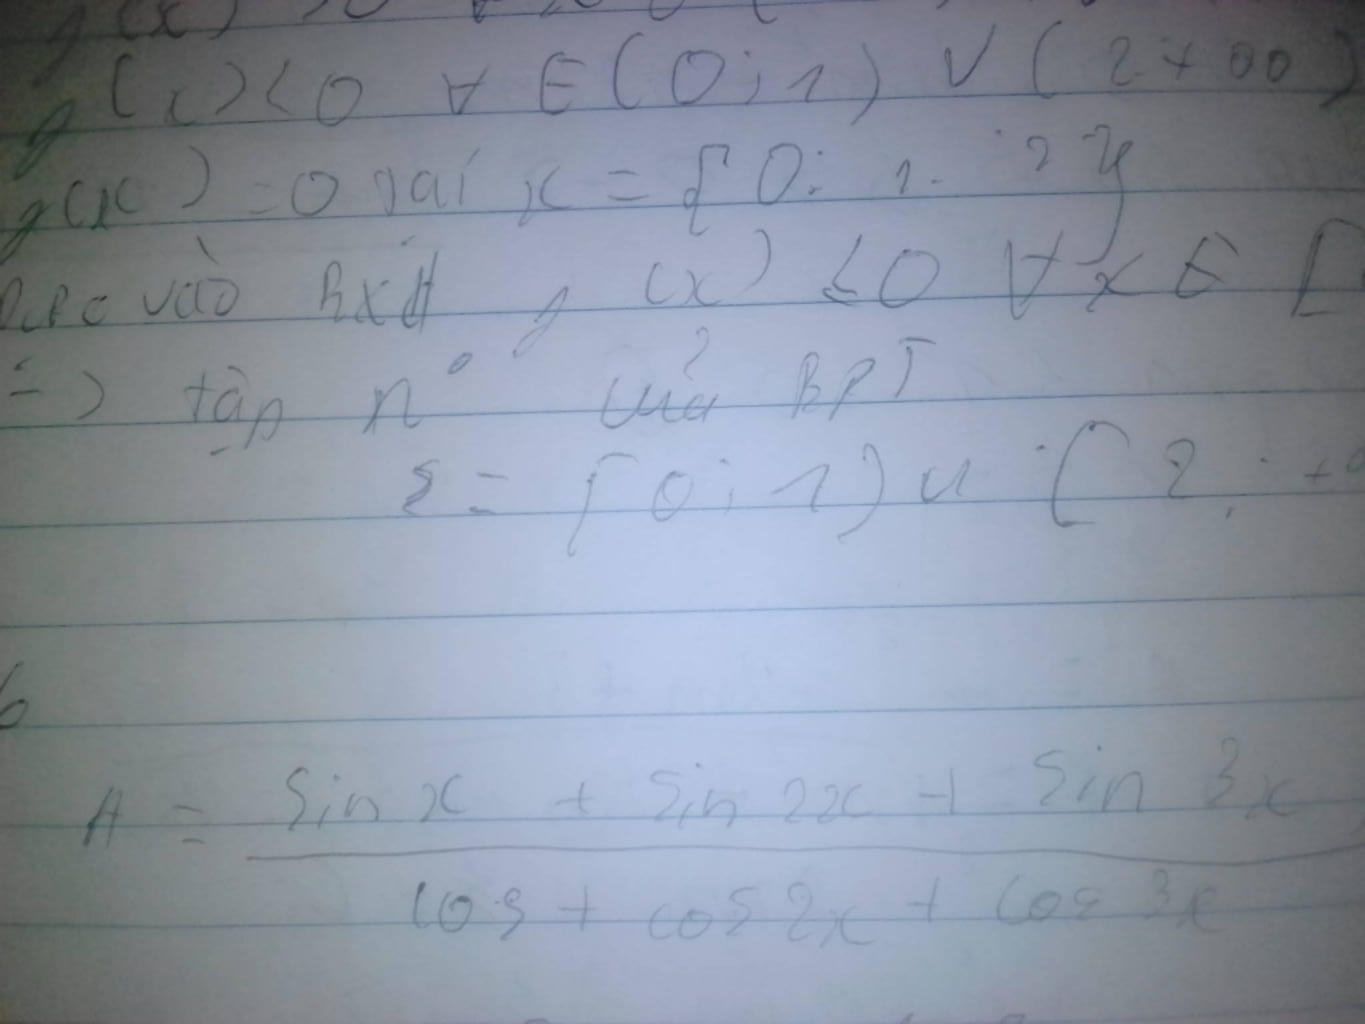 g(x) < 0 ∀ ∈ (0; 1) ∨ (2 + 00)
g(x) = 0 vai x = {0; 1. ; 2}
vào BXĐ g(x) ≤ 0 ∀ x ∈ [
=> tập n° của BPT
S = [0; 1) ∪ (2; +
6
A = sin x + sin 2x + sin 3x
cos + cos 2x + cos 3x